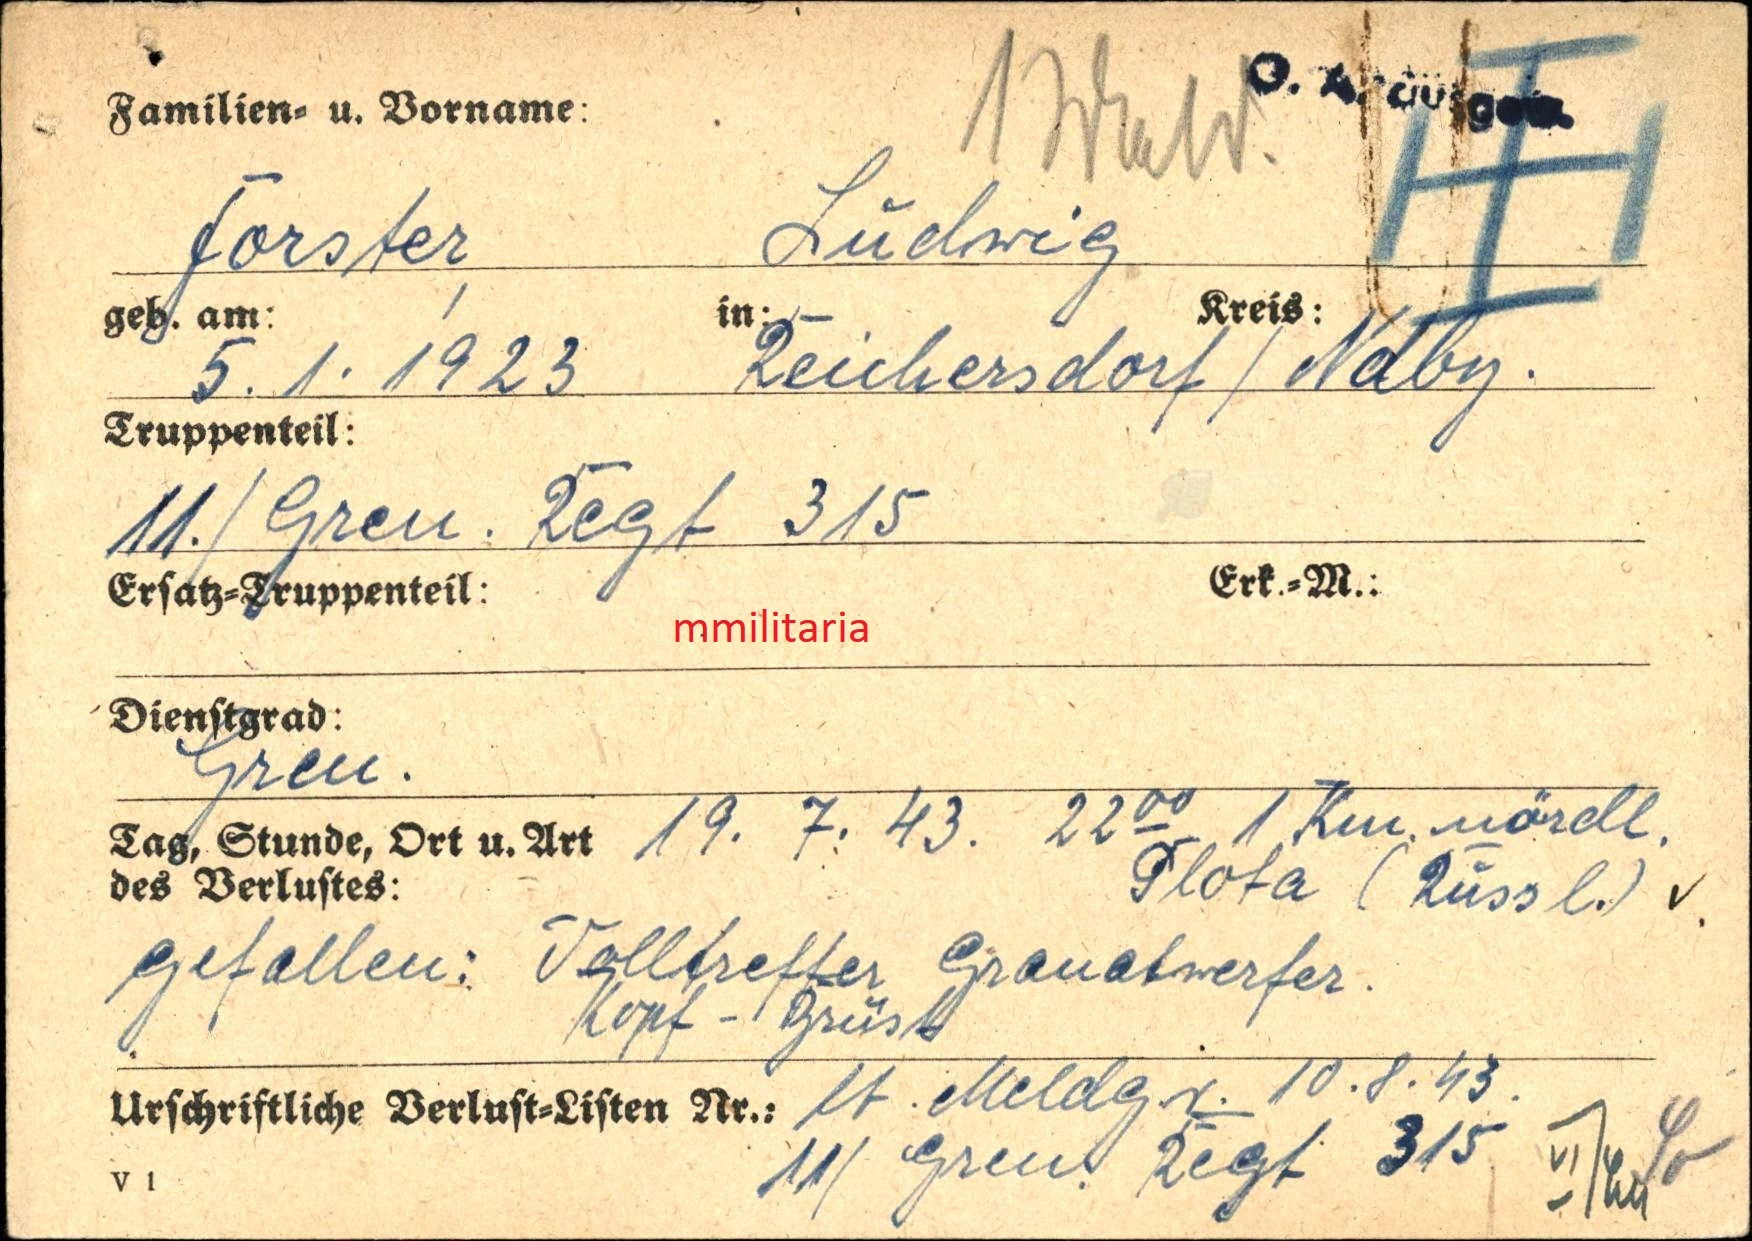 Familien- u. Vorname:
Forster Ludwig
geb. am: in: Kreis:
5. 1. 1923 Reichersdorf / Ndby.
Truppenteil:
11./ Gren. Regt 315
Ersatz-Truppenteil: Erk.-M.:
mmilitaria
Dienstgrad:
Gren.
Tag, Stunde, Ort u. Art 19. 7. 43. 22 00 1 Km. nördl.
des Verlustes: Plota (Russl.)
gefallen: Volltreffer Granatwerfer.
Kopf - Brust
Urschriftliche Verlust-Listen Nr.: lt. Meldg. v. 10.8.43.
11/ Gren. Regt 315
V 1